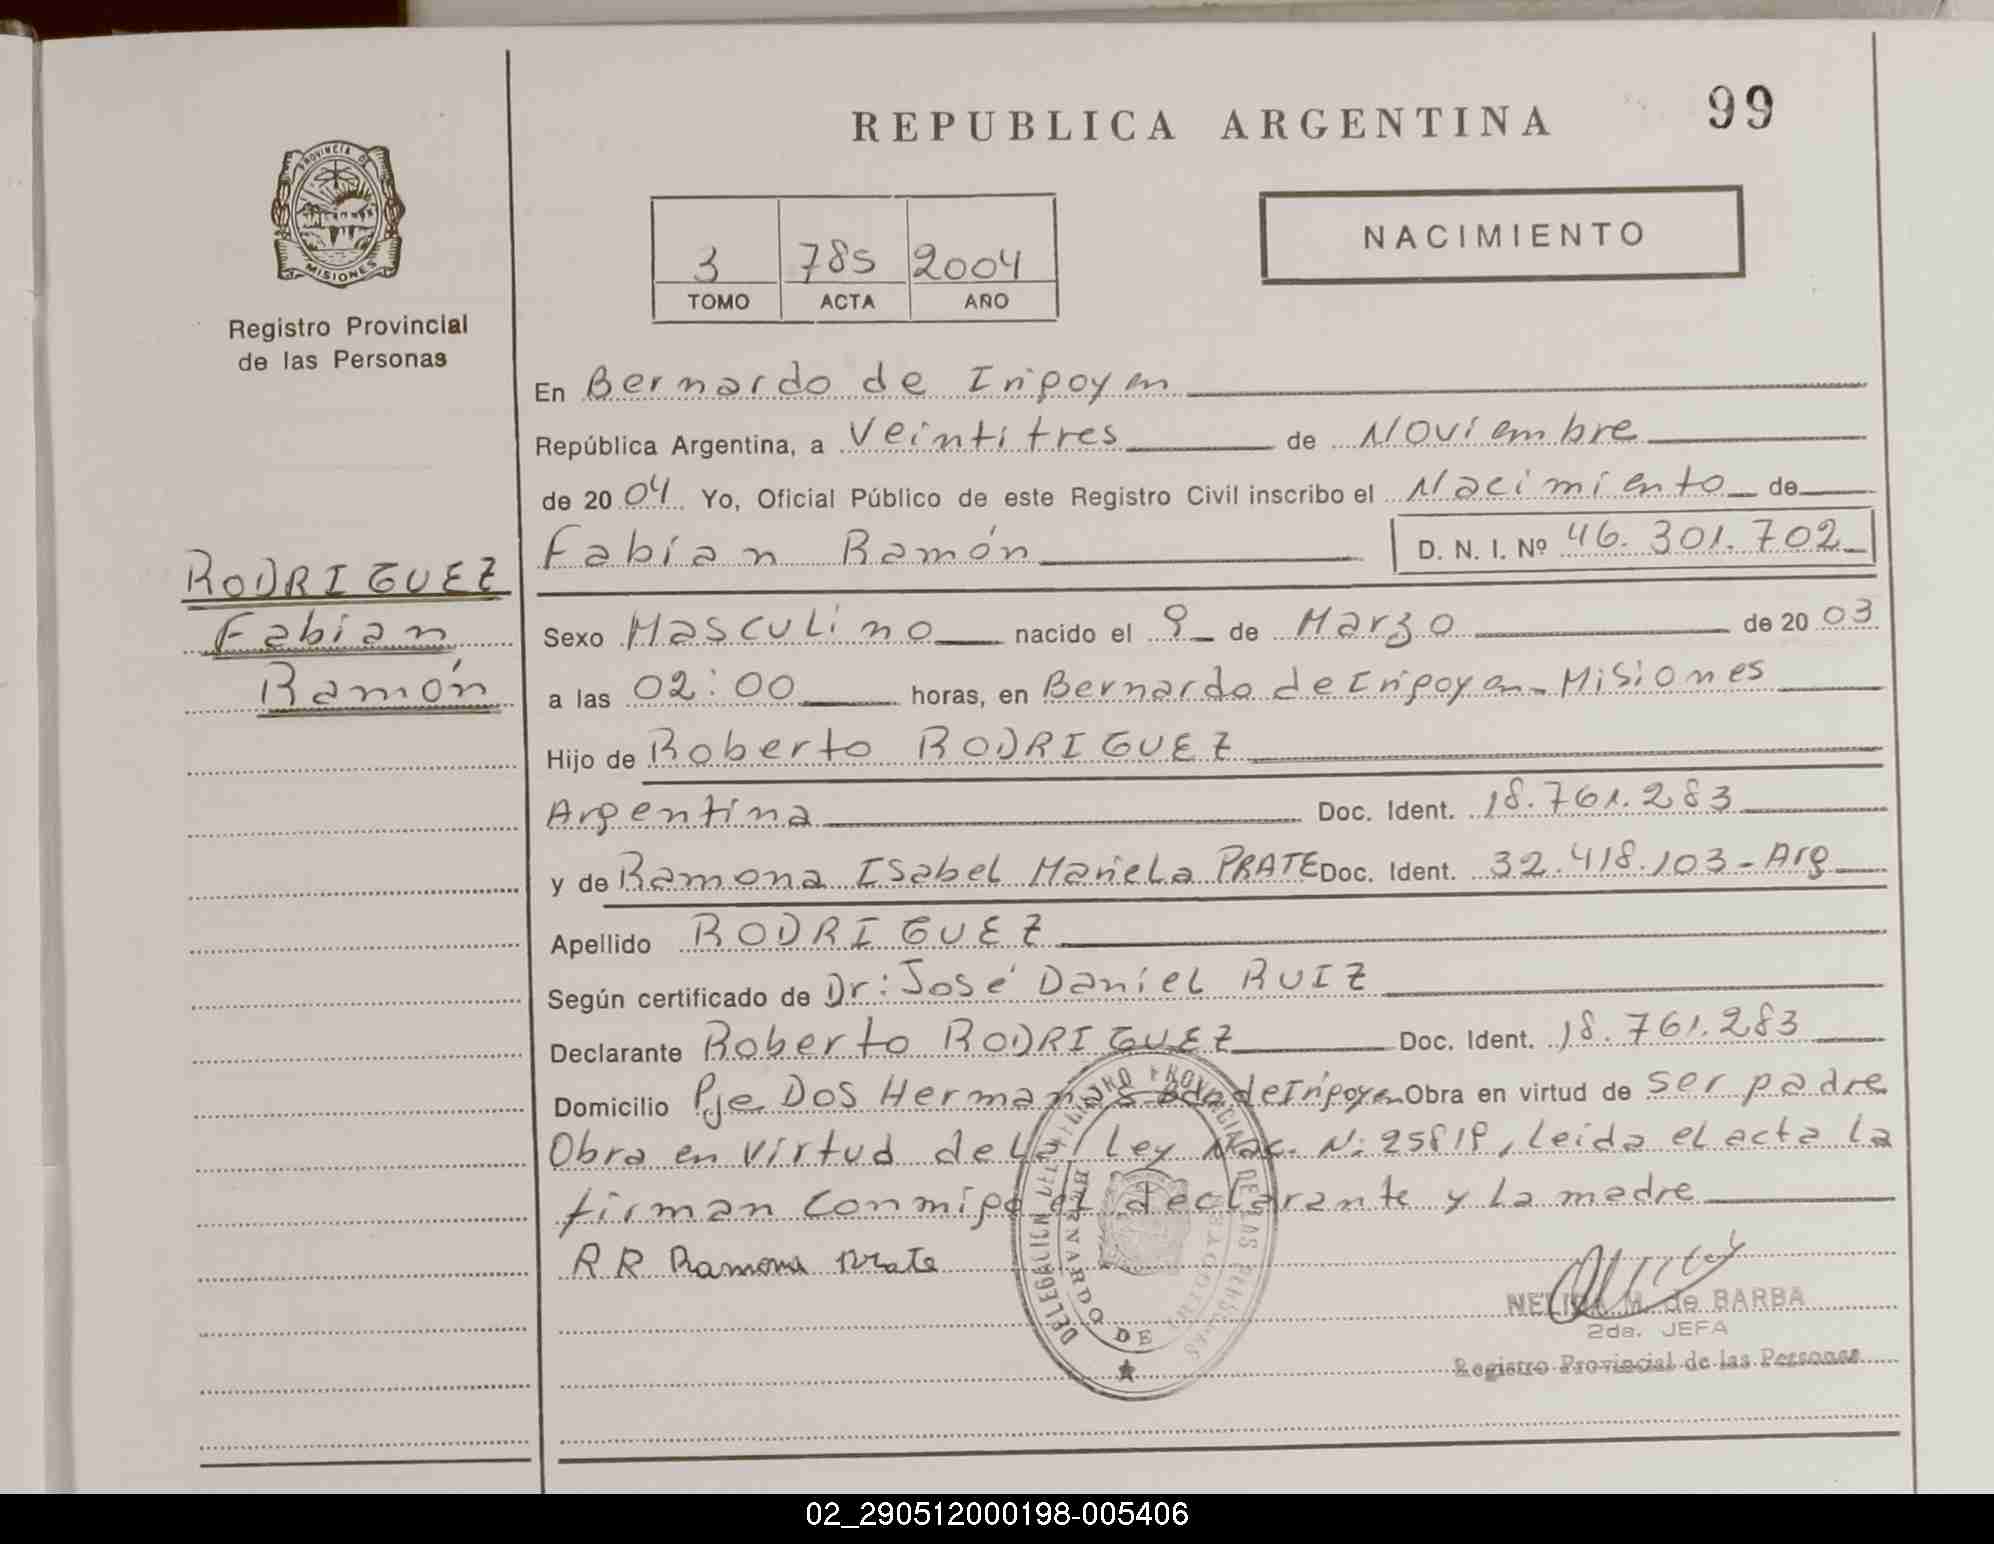 REPUBLICA ARGENTINA
99
PROVINCIA DE
MISIONES
Registro Provincial
de las Personas
3 785 2004
TOMO ACTA AÑO
NACIMIENTO
En Bernardo de Irigoyen
República Argentina, a Veintitres de Noviembre
de 20 04 Yo, Oficial Público de este Registro Civil inscribo el Nacimiento de
Fabian Ramón D. N. I. Nº 46.301.702
RODRIGUEZ
Fabian
Ramón
Sexo Masculino nacido el 9 de Marzo de 20 03
a las 02:00 horas, en Bernardo de Irigoyen - Misiones
Hijo de Roberto RODRIGUEZ
Argentina Doc. Ident. 18.761.283
y de Ramona Isabel Mariela PRATE Doc. Ident. 32.418.103 - Arg
Apellido RODRIGUEZ
Según certificado de Dr: José Daniel RUIZ
Declarante Roberto RODRIGUEZ Doc. Ident. 18.761.283
Domicilio Pje Dos Hermanas Bdo de Irigoyen Obra en virtud de ser padre
Obra en virtud de la Ley Nac. N: 25819, leida el acta la
firman conmigo el declarante y la madre
R R Ramona Prate
DELEGACION DEL REGISTRO PROVINCIAL DE LAS PERSONAS
BERNARDO DE IRIGOYEN
NELIDA M. de BARBA
2da. JEFA
Registro Provincial de las Personas
02_290512000198-005406